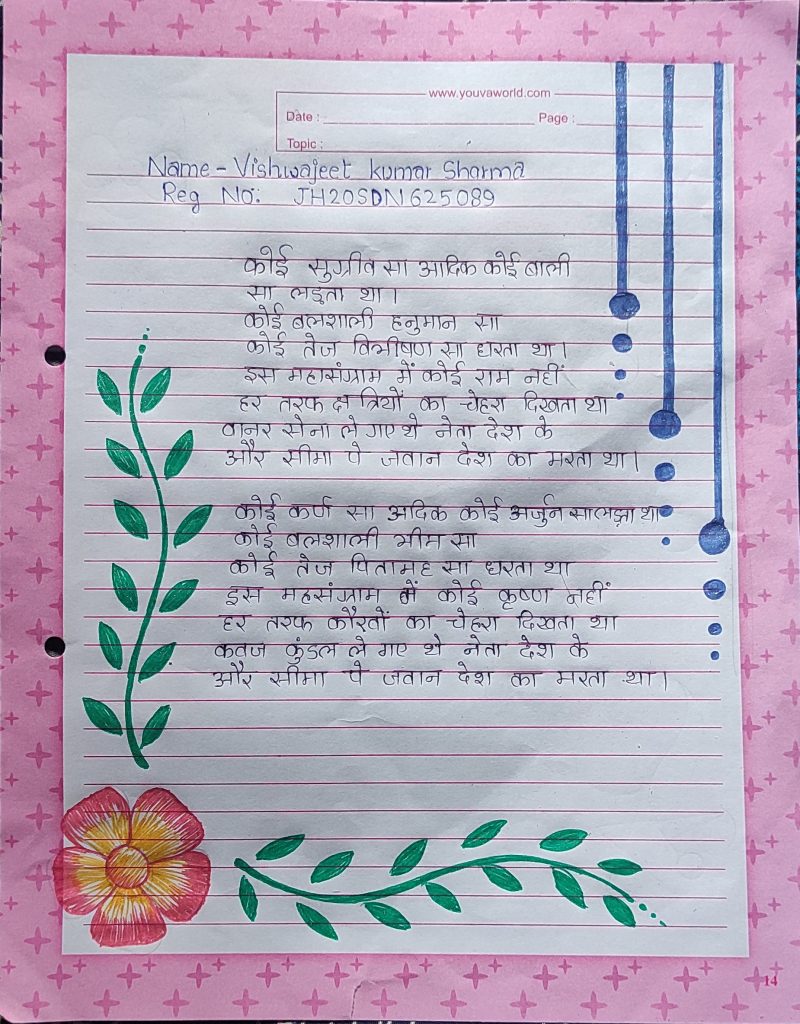 www.youvaworld.com
Date : Page :
Topic :
Name - Vishwajeet kumar Sharma
Reg No: JH20SDN625089
कोई सुग्रीव सा आदिक कोई बाली
सा लड़ता था।
कोई बलशाली हनुमान सा
कोई तेज विभीषण सा धरता था।
इस महासंग्राम में कोई राम नहीं
हर तरफ क्षत्रियों का चेहरा दिखता था
वानर सेना ले गए थे नेता देश के
और सीमा पे जवान देश का मरता था।
कोई कर्ण सा आदिक कोई अर्जुन सा था
कोई बलशाली भीम सा
कोई तेज पितामह सा धरता था
इस महसंग्राम में कोई कृष्ण नहीं
हर तरफ कौरवों का चेहरा दिखता था
कवज कुंडल ले गए थे नेता देश के
और सीमा पे जवान देश का मरता था।
14